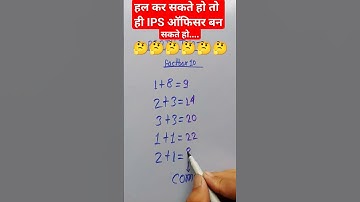 हल कर सकते हो तो
ही IPS ऑफिसर बन
सकते हो....
1+8=9
2+3=14
3+3=20
1+1=22
2+1=?
com